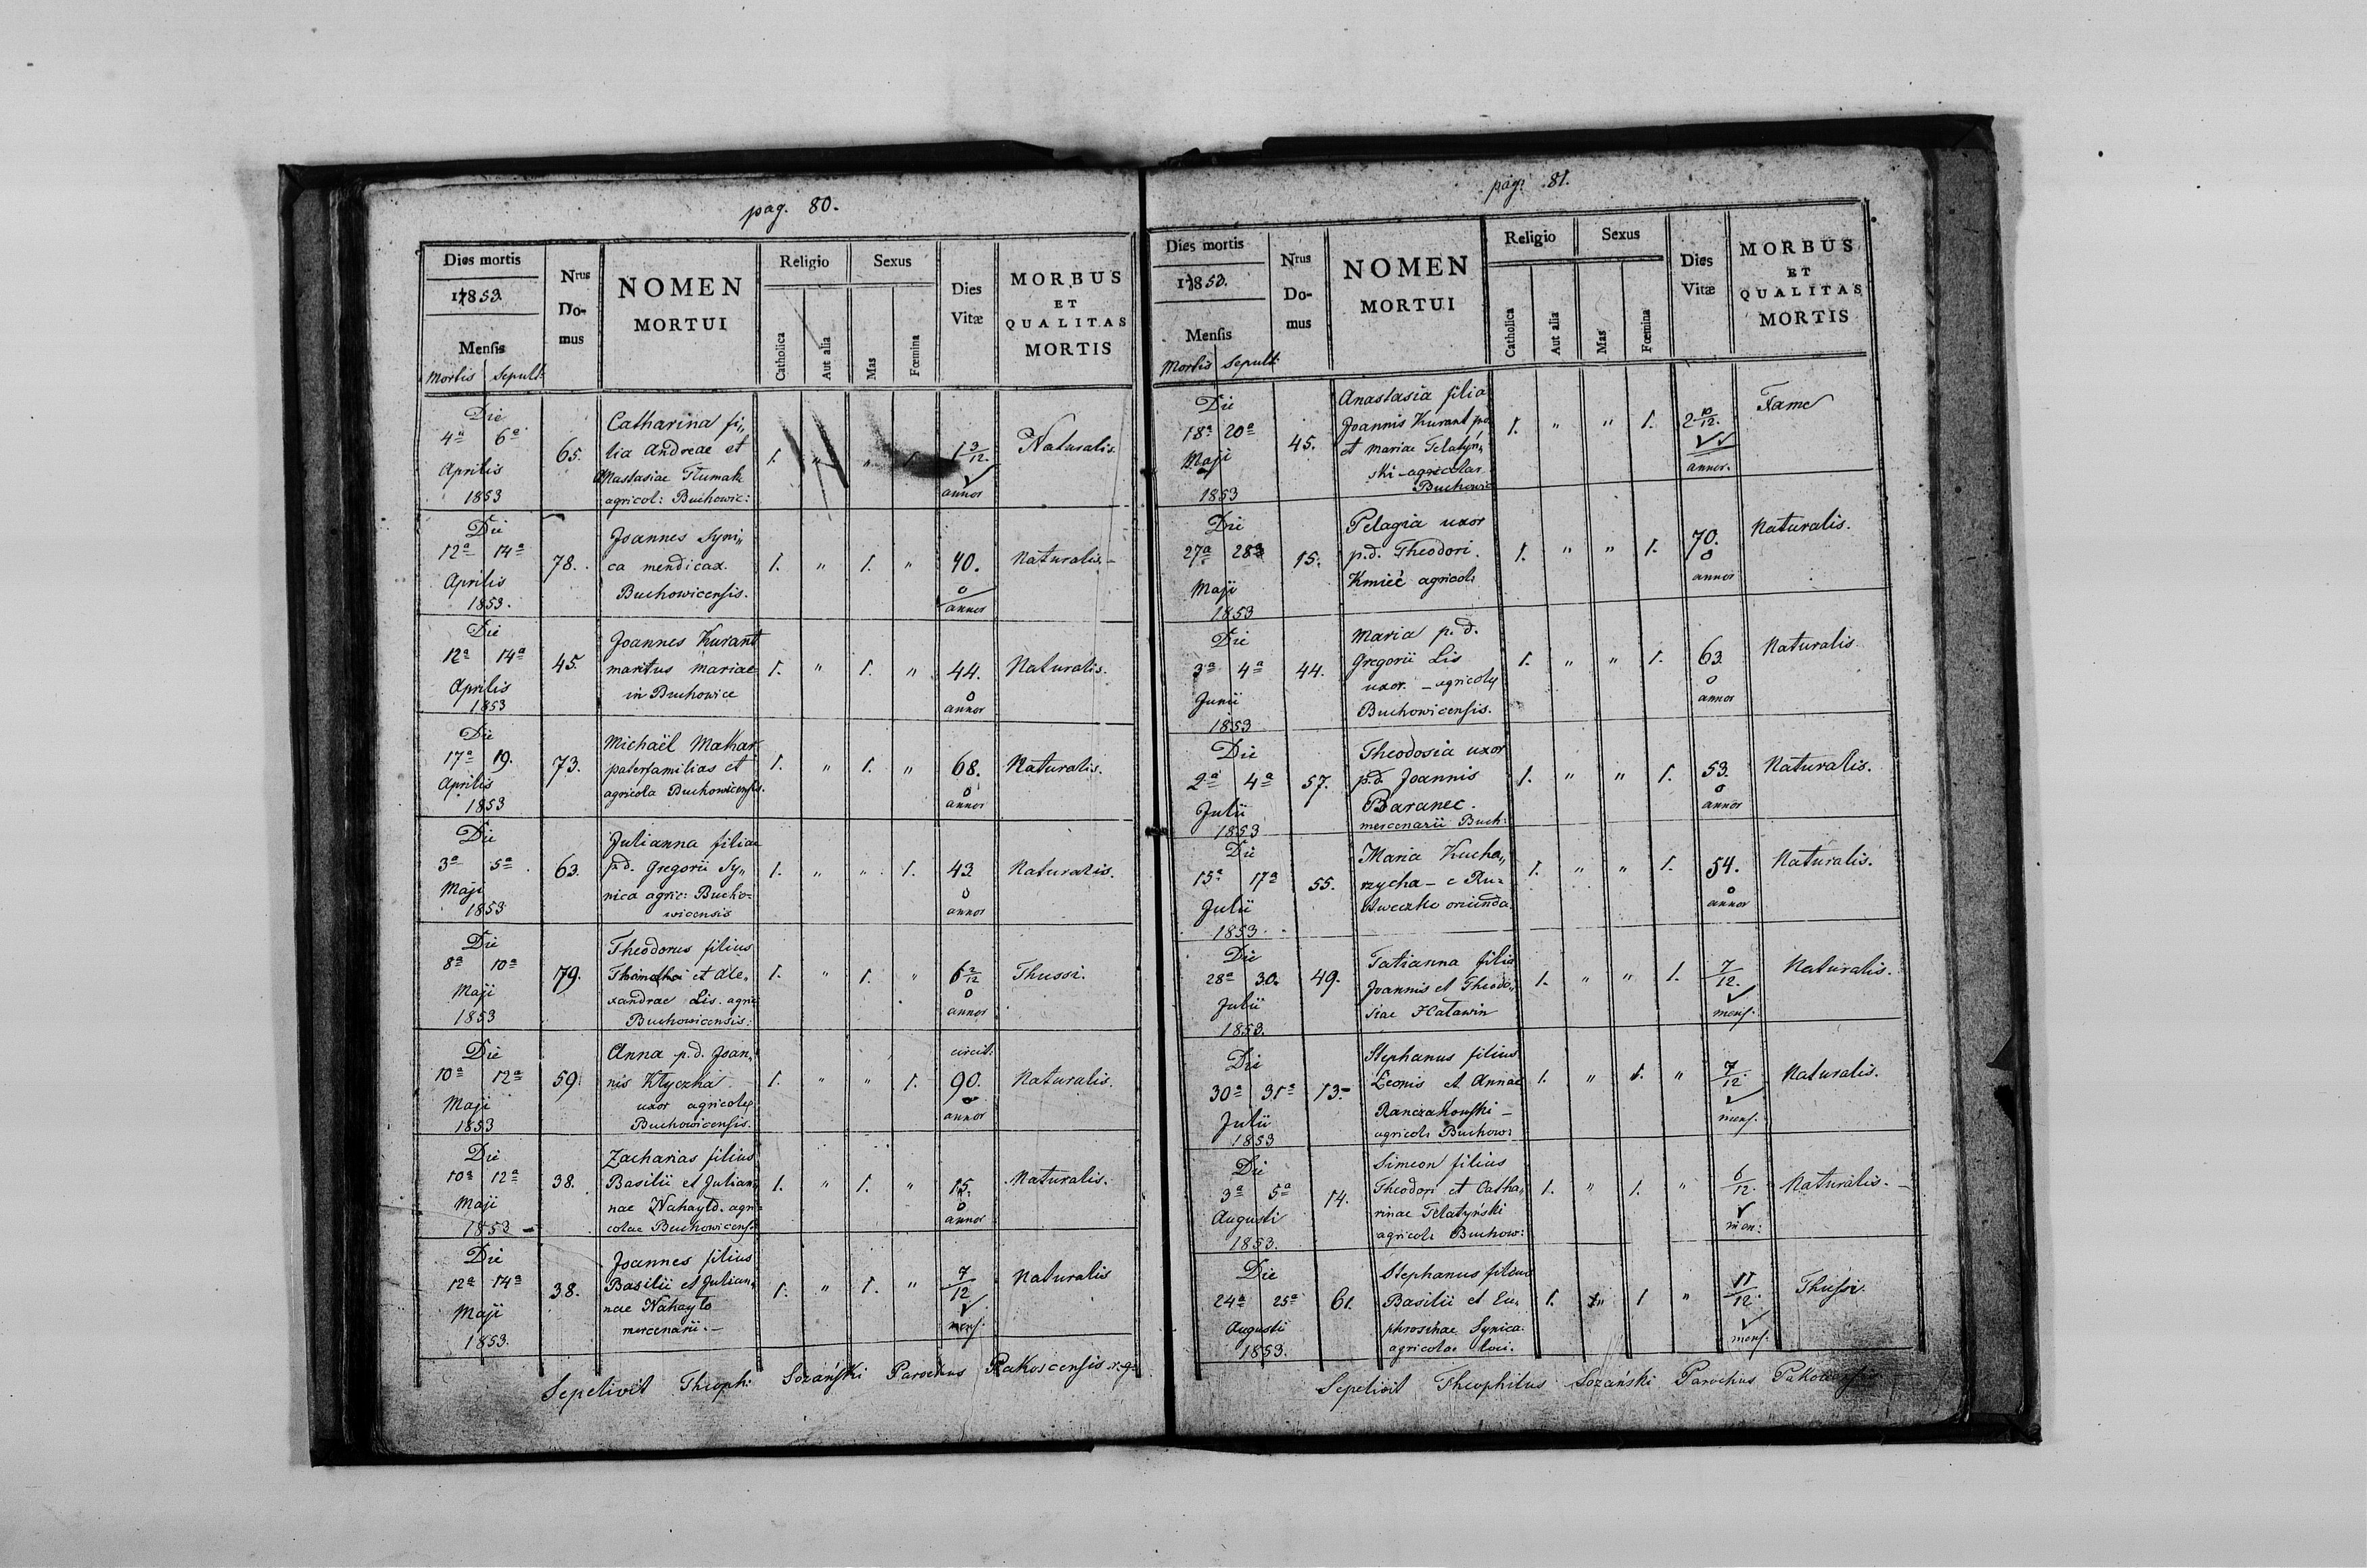 pag. 80.
Dies mortis
1853.
Mensis
Mortis Sepult:
Nrus Domus
NOMEN
MORTUI
Religio
Catholica
Aut alia
Sexus
Mas
Fœmina
Dies
Vitæ
MORBUS
ET
QUALITAS
MORTIS
Die
4a 6a
Aprilis
1853
65.
Catharina fi„
lia Andreae et
Anastasiae Tłumak
agricol: Buchowic:
1. „ „ 1.
1 3/12.
annor
Naturalis.
Die
12a 14a
Aprilis
1853.
78.
Joannes Syni„
ca mendicax.
Buchowicensis.
1. „ 1. „
40.
annor
Naturalis. –
Die
12a 14a
Aprilis
1853
45.
Joannes Kurant
maritus Mariae
in Buchowice
1. „ 1. „
44.
annor
Naturalis.
Die
17a 19.
Aprilis
1853
73.
Michaël Mathar
paterfamilias et
agricola Buchowicensis.
1. „ 1. „
68.
annor
Naturalis.
Die
3a 5a
Maji
1853
63.
Julianna filia
p.d. Gregorii Sy„
nica agric: Bucho=
wicensis
1. „ „ 1.
43
annor
Naturalis.
Die
8a 10a
Maji
1853
79.
Theodorus filius
et Ale„
xandrae Lis. agric
Buchowicensis:
1. „ 1. „
6 2/12
annor
Thussi.
Die
10a 12a
Maji
1853
59.
Anna p.d. Joan„
nis Kłyczha
uxor agricolae
Buchowicensis.
1. „ „ 1.
circit:
90.
annor
Naturalis.
Die
10a 12a
Maji
1853 –
38.
Zacharias filius
Basilii et Julian„
nae Nahayło. agri=
colae Buchowicensis
1. „ 1. „
15.
annor
Naturalis.
Die
12a 14a
Maji
1853.
38.
Joannes filius
Basilii et Julian„
nae Nahayło
mercenarii. –
1. „ 1. „
7/12
mens.
Naturalis
Sepelivit Theoph: Sozański Parochus Rakoscensis r. g.
pag. 81.
Dies mortis
1853.
Mensis
Mortis Sepult:
Nrus Domus
NOMEN
MORTUI
Religio
Catholica
Aut alia
Sexus
Mas
Fœmina
Dies
Vitæ
MORBUS
ET
QUALITAS
MORTIS
Die
18a 20a
Maji
1853
45.
Anastasia filia
Joannis Kurant
et Mariae Telatyń„
ski – agricolar.
Buchowic
1. „ „ 1.
2 10/12.
annor.
Fame
Die
27a 28a
Maji
1853
15.
Pelagia uxor
p.d. Theodori.
Kmieć agricol:
1. „ „ 1.
70.
annor
Naturalis.
Die
3a 4a
Junii
1853
44.
Maria p.d.
Gregorii Lis
uxor. – agricolae
Buchowicensis.
1. „ „ 1.
63
annor
Naturalis.
Die
2a 4a
Julii
1853
57.
Theodosia uxor
p.d. Joannis
Baranec.
mercenarii Buch:
1. „ „ 1.
53.
annor
Naturalis.
Die
15a 17a
Julii
1853.
55.
Maria Kucha„
rzycha – e
oriunda
1. „ „ 1.
54.
annor
Naturalis.
Die
28a 30.
Julii
1853.
49.
Tatianna filia
Joannis et Theodo„
siae Hatawin
1. „ „ 1.
7/12.
mens.
Naturalis.
Die
30a 31a
Julii
1853
13.–
Stephanus filius
Leonis et Annae
Ranczakowski –
agricol: Buchow:
1. „ 1. „
7/12.
mens.
Naturalis.
Die
3a 5a
Augusti
1853.
14.
Simeon filius
Theodori et Catha„
rinae Telatyński
agricol: Buchow:
1. „ 1. „
6/12.
men:
Naturalis. –
Die
24a 25a
Augusti
1853.
61.
Stephanus filius
Basilii et Eu„
phrosinae Synica.
agricolae loci.
1. „ 1 „
11/12.
mens.
Thussi.
Sepelivit Theophilus Sozański Parochus